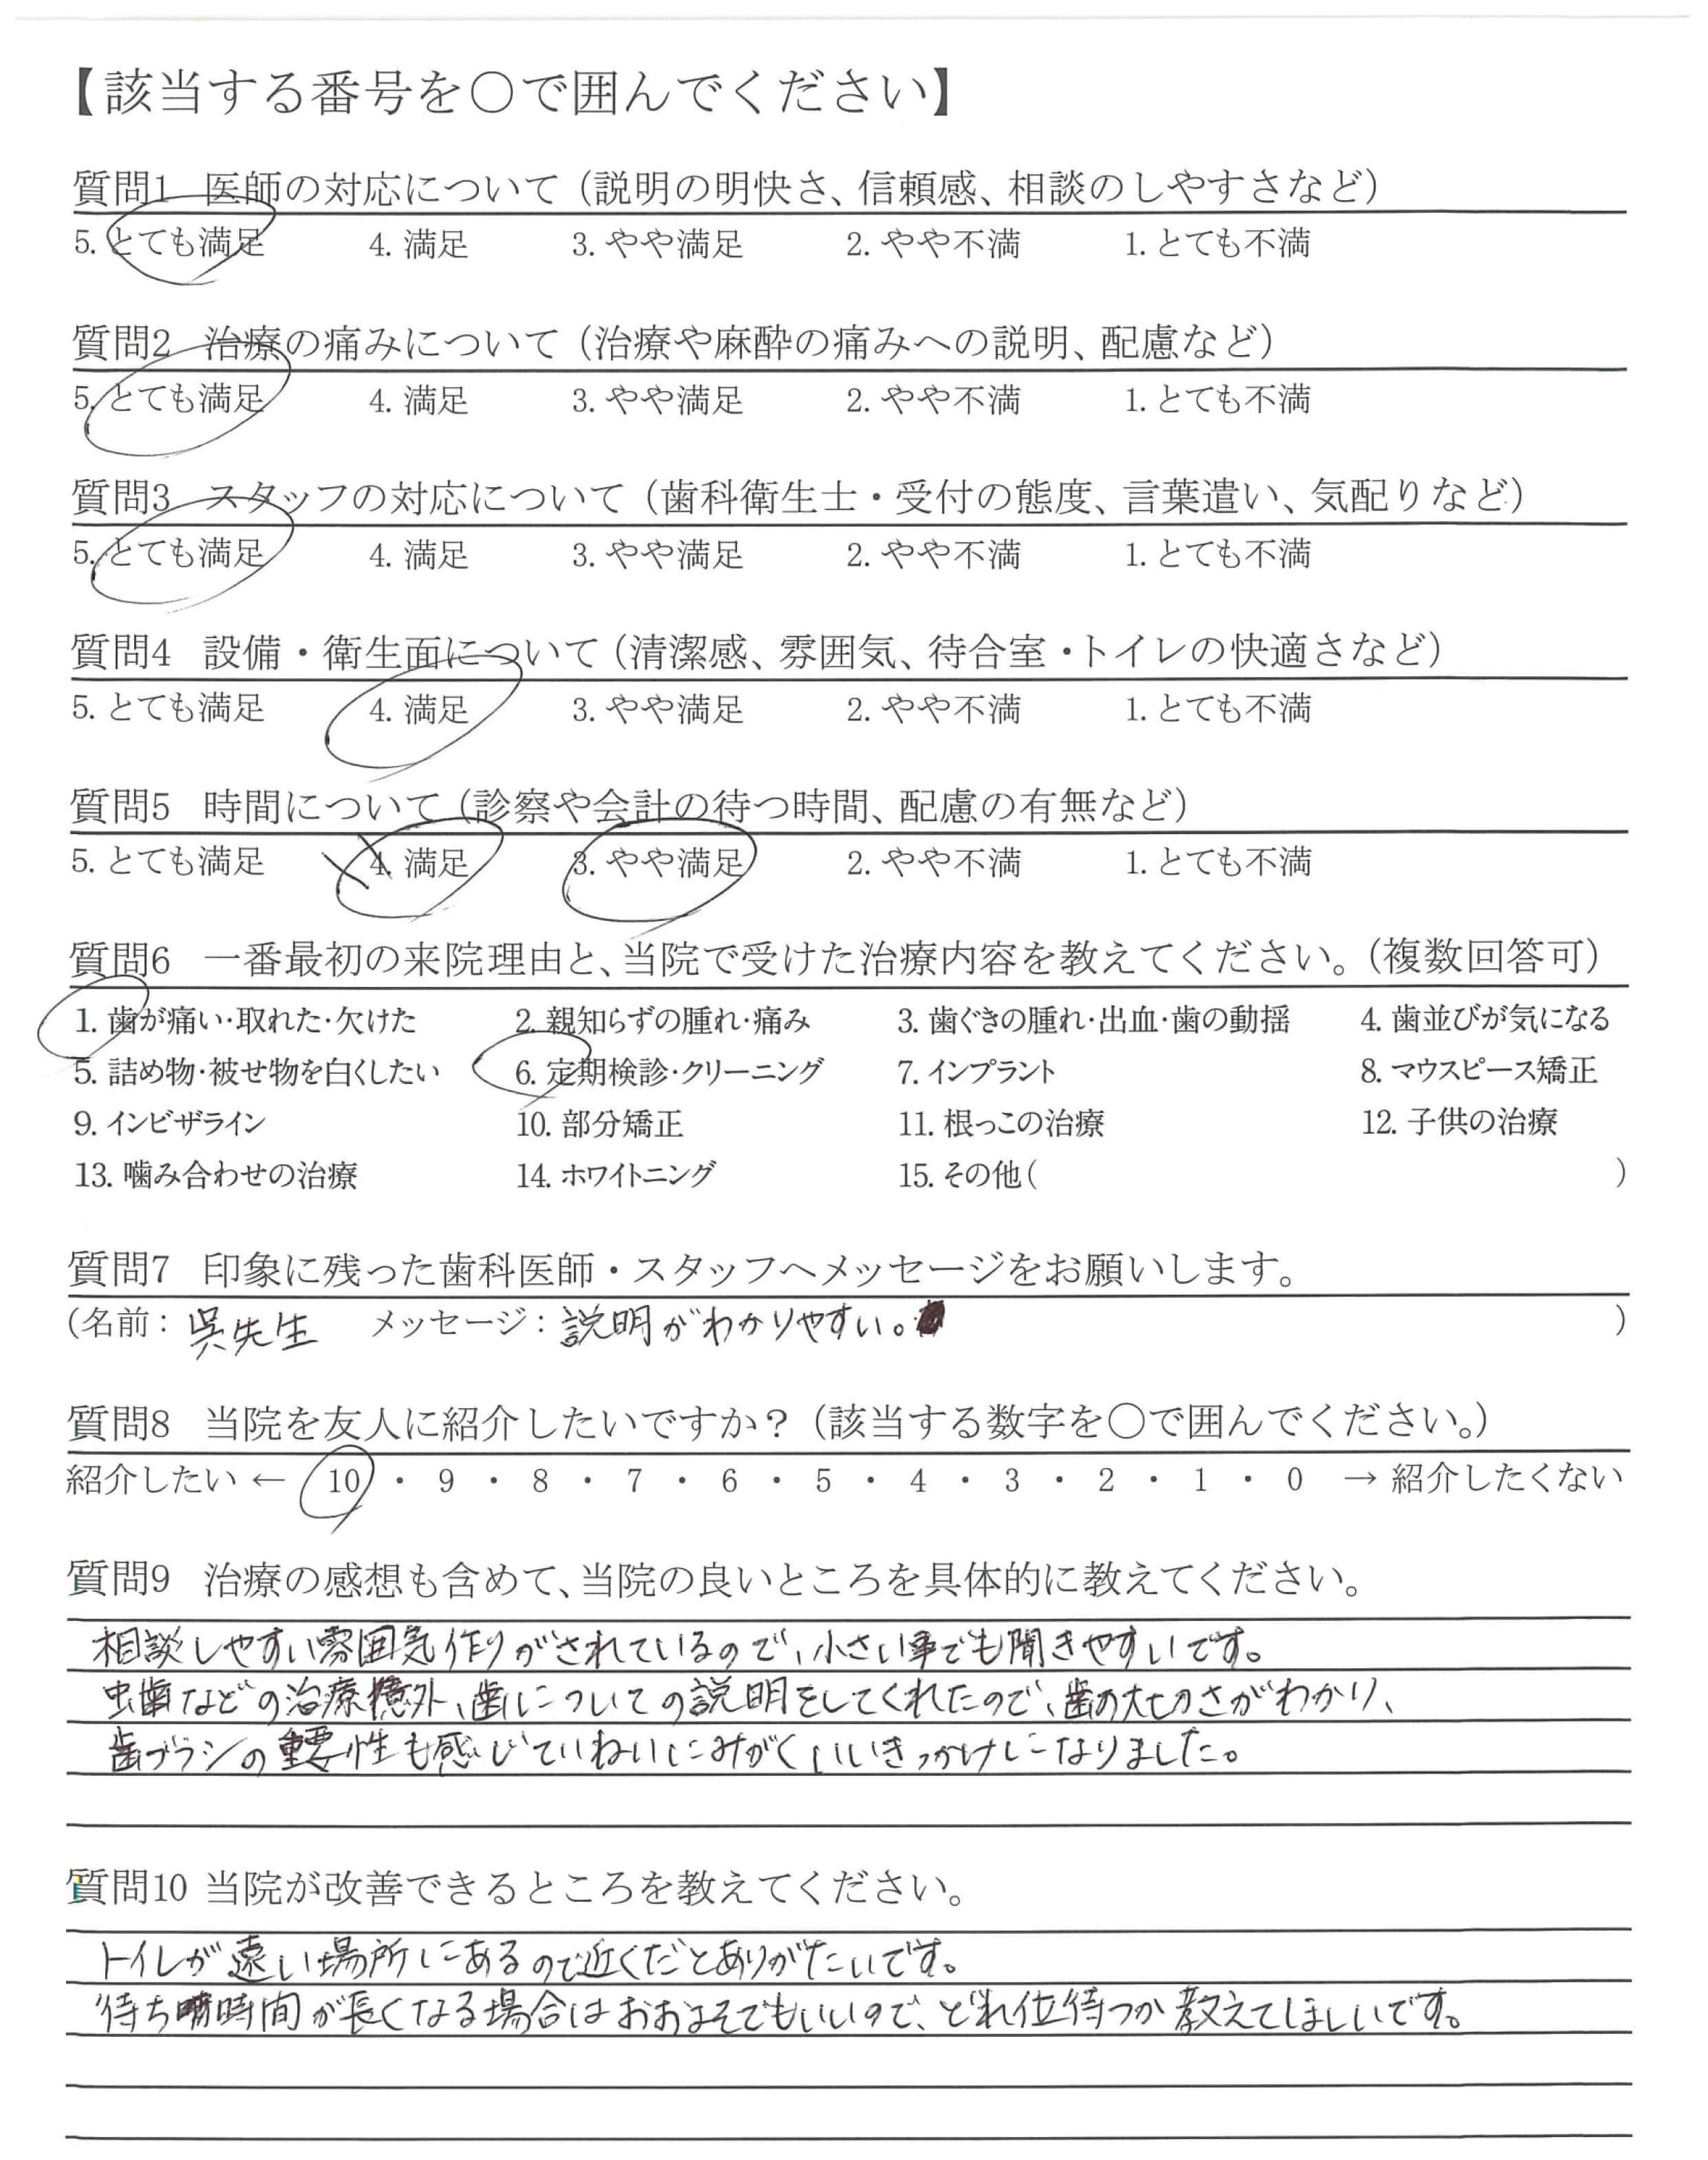 【該当する番号を○で囲んでください】
質問1 医師の対応について（説明の明快さ、信頼感、相談のしやすさなど）
5. とても満足 4. 満足 3. やや満足 2. やや不満 1. とても不満
質問2 治療の痛みについて（治療や麻酔の痛みへの説明、配慮など）
5. とても満足 4. 満足 3. やや満足 2. やや不満 1. とても不満
質問3 スタッフの対応について（歯科衛生士・受付の態度、言葉遣い、気配りなど）
5. とても満足 4. 満足 3. やや満足 2. やや不満 1. とても不満
質問4 設備・衛生面について（清潔感、雰囲気、待合室・トイレの快適さなど）
5. とても満足 4. 満足 3. やや満足 2. やや不満 1. とても不満
質問5 時間について（診察や会計の待つ時間、配慮の有無など）
5. とても満足 4. 満足 3. やや満足 2. やや不満 1. とても不満
質問6 一番最初の来院理由と、当院で受けた治療内容を教えてください。（複数回答可）
1. 歯が痛い・取れた・欠けた 2. 親知らずの腫れ・痛み 3. 歯ぐきの腫れ・出血・歯の動揺 4. 歯並びが気になる
5. 詰め物・被せ物を白くしたい 6. 定期検診・クリーニング 7. インプラント 8. マウスピース矯正
9. インビザライン 10. 部分矯正 11. 根っこの治療 12. 子供の治療
13. 噛み合わせの治療 14. ホワイトニング 15. その他（ ）
質問7 印象に残った歯科医師・スタッフへメッセージをお願いします。
（名前：呉先生 メッセージ：説明がわかりやすい。 ）
質問8 当院を友人に紹介したいですか？（該当する数字を○で囲んでください。）
紹介したい ← 10 ・ 9 ・ 8 ・ 7 ・ 6 ・ 5 ・ 4 ・ 3 ・ 2 ・ 1 ・ 0 → 紹介したくない
質問9 治療の感想も含めて、当院の良いところを具体的に教えてください。
相談しやすい雰囲気作りがされているので、小さい事でも聞きやすいです。
虫歯などの治療以外、歯についての説明をしてくれたので、歯の大切さがわかり、
歯ブラシの重要性も感じていねいにみがくいいきっかけになりました。
質問10 当院が改善できるところを教えてください。
トイレが遠い場所にあるので近くだとありがたいです。
待ち時間が長くなる場合はおおよそでもいいので、どれ位待つか教えてほしいです。